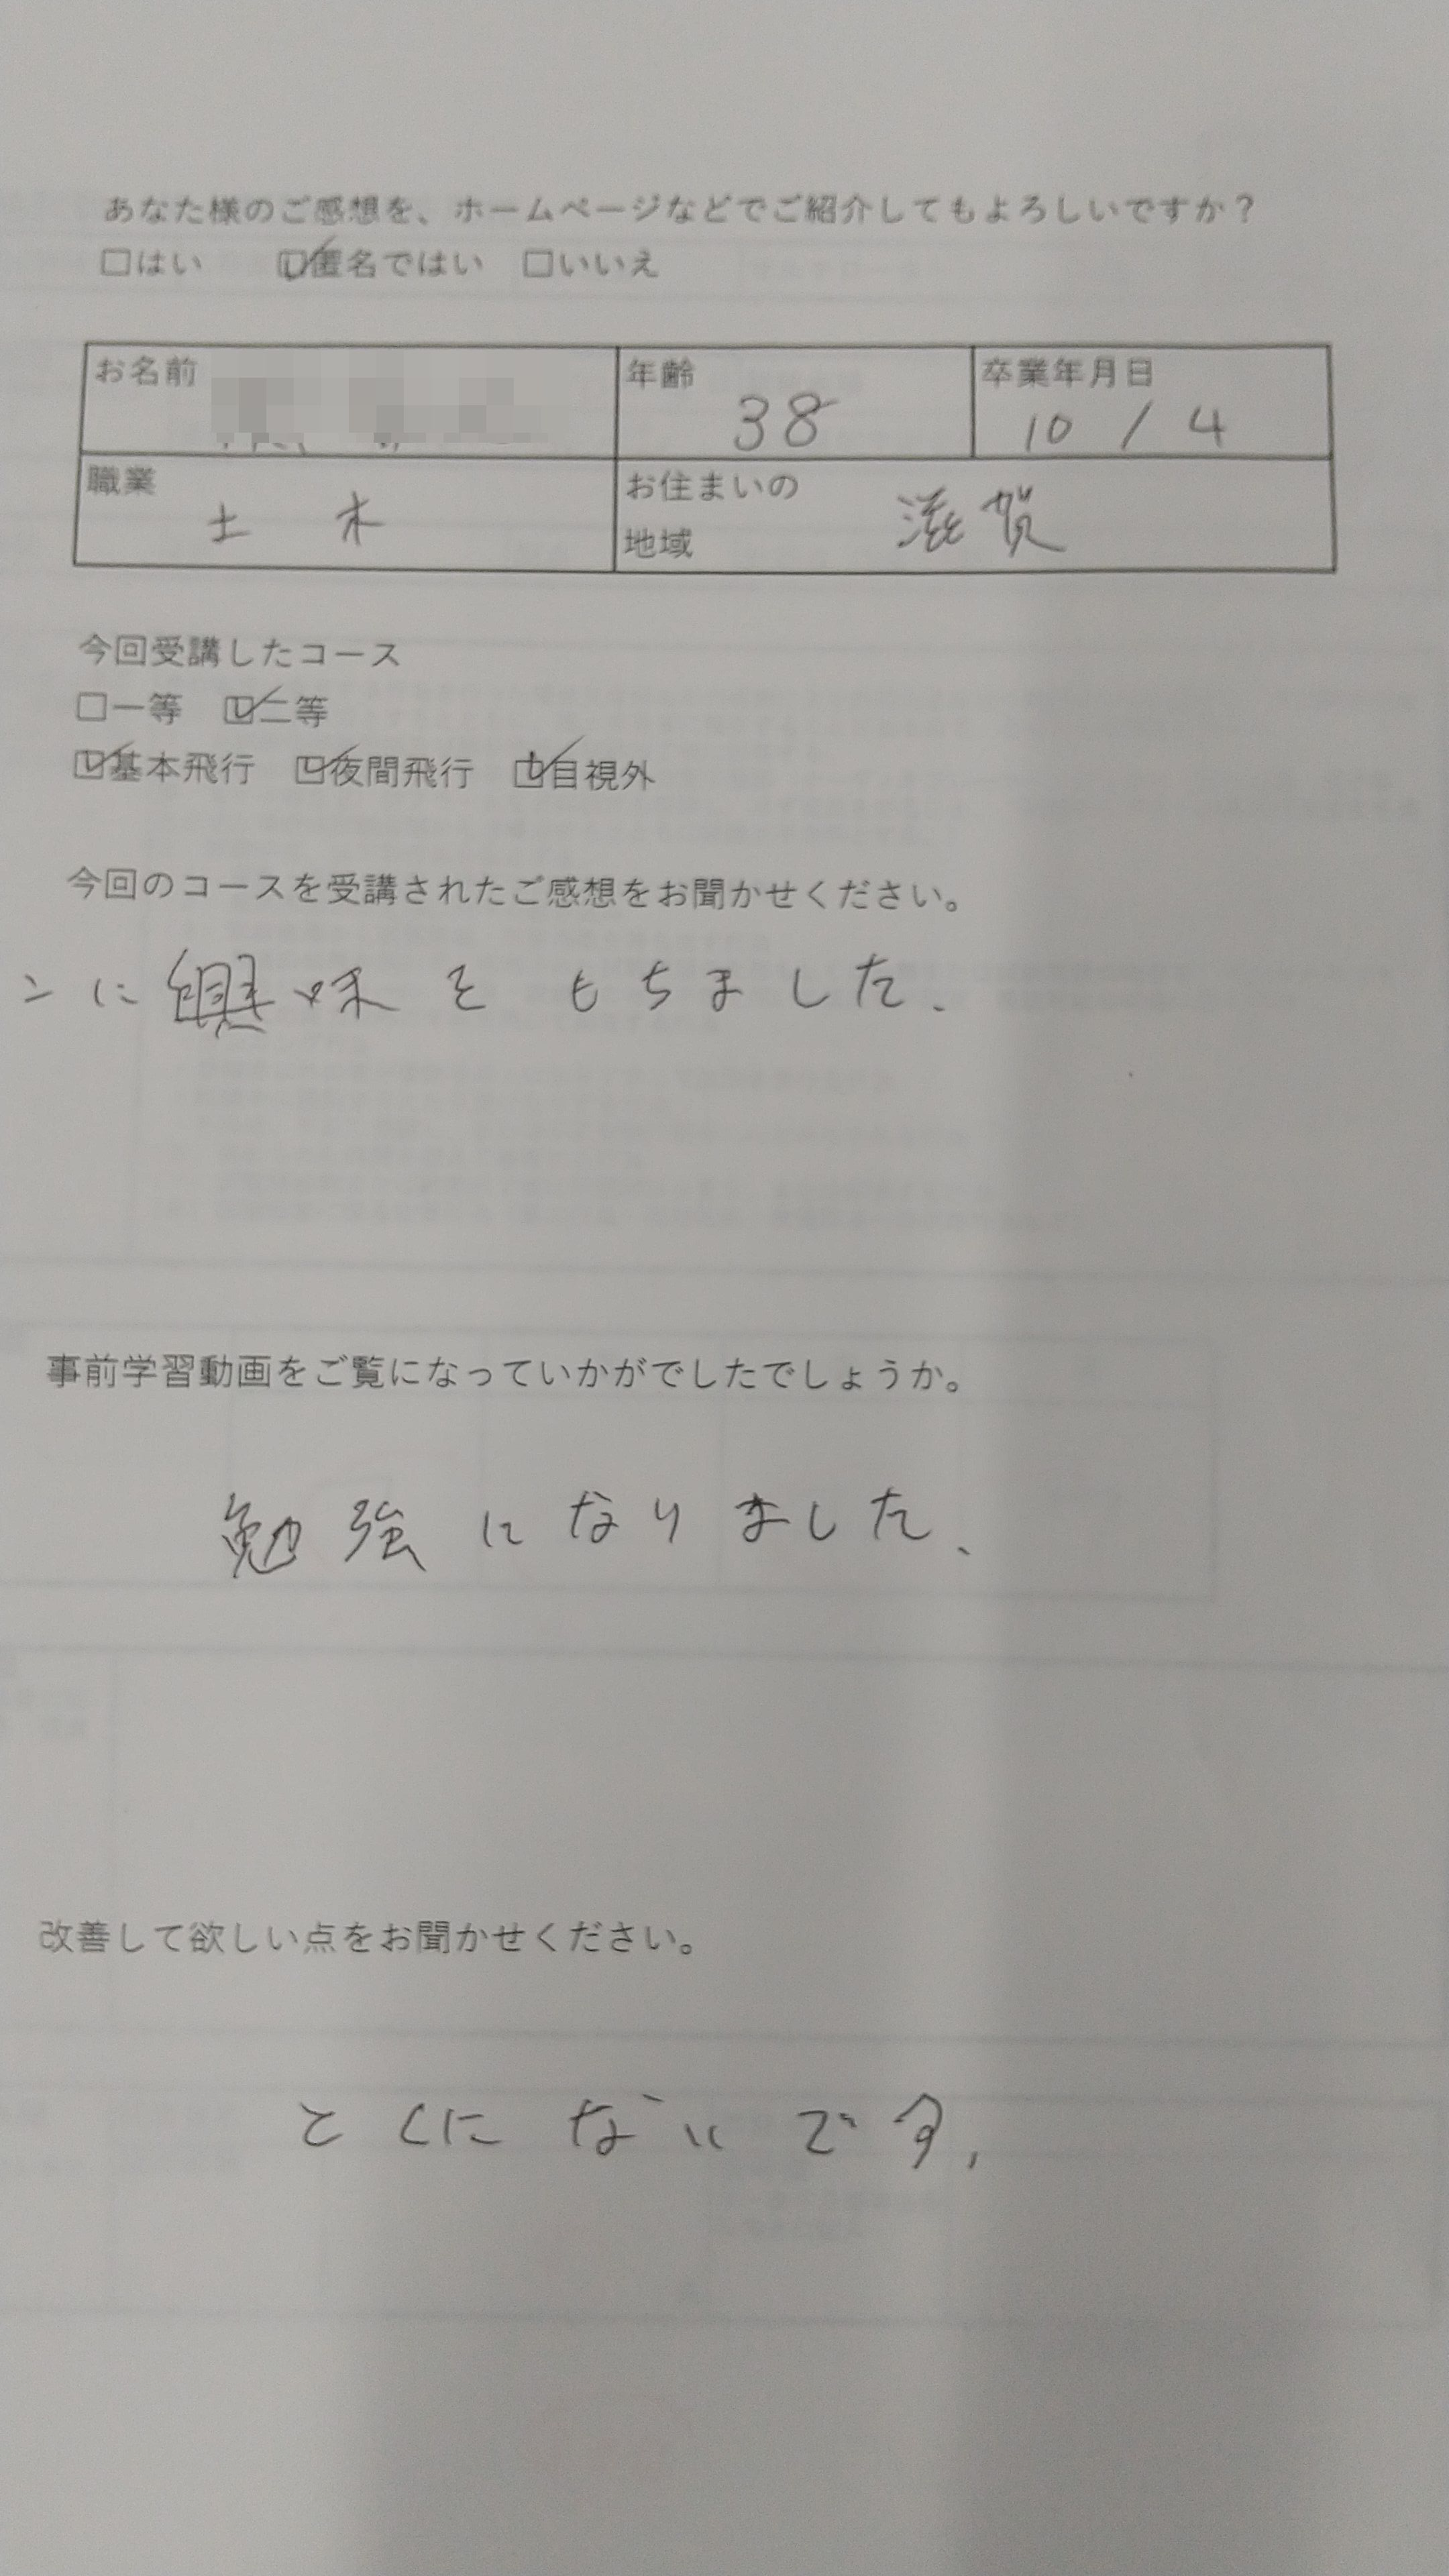 あなた様のご感想を、ホームページなどでご紹介してもよろしいですか？
□はい ☑匿名ではい □いいえ
お名前
年齢 38
卒業年月日 10 / 4
職業 土木
お住まいの地域 滋賀
今回受講したコース
□一等 ☑二等
☑基本飛行 ☑夜間飛行 ☑目視外
今回のコースを受講されたご感想をお聞かせください。
ンに興味をもちました.
事前学習動画をご覧になっていかがでしたでしょうか。
勉強になりました、
改善して欲しい点をお聞かせください。
とくにないです,